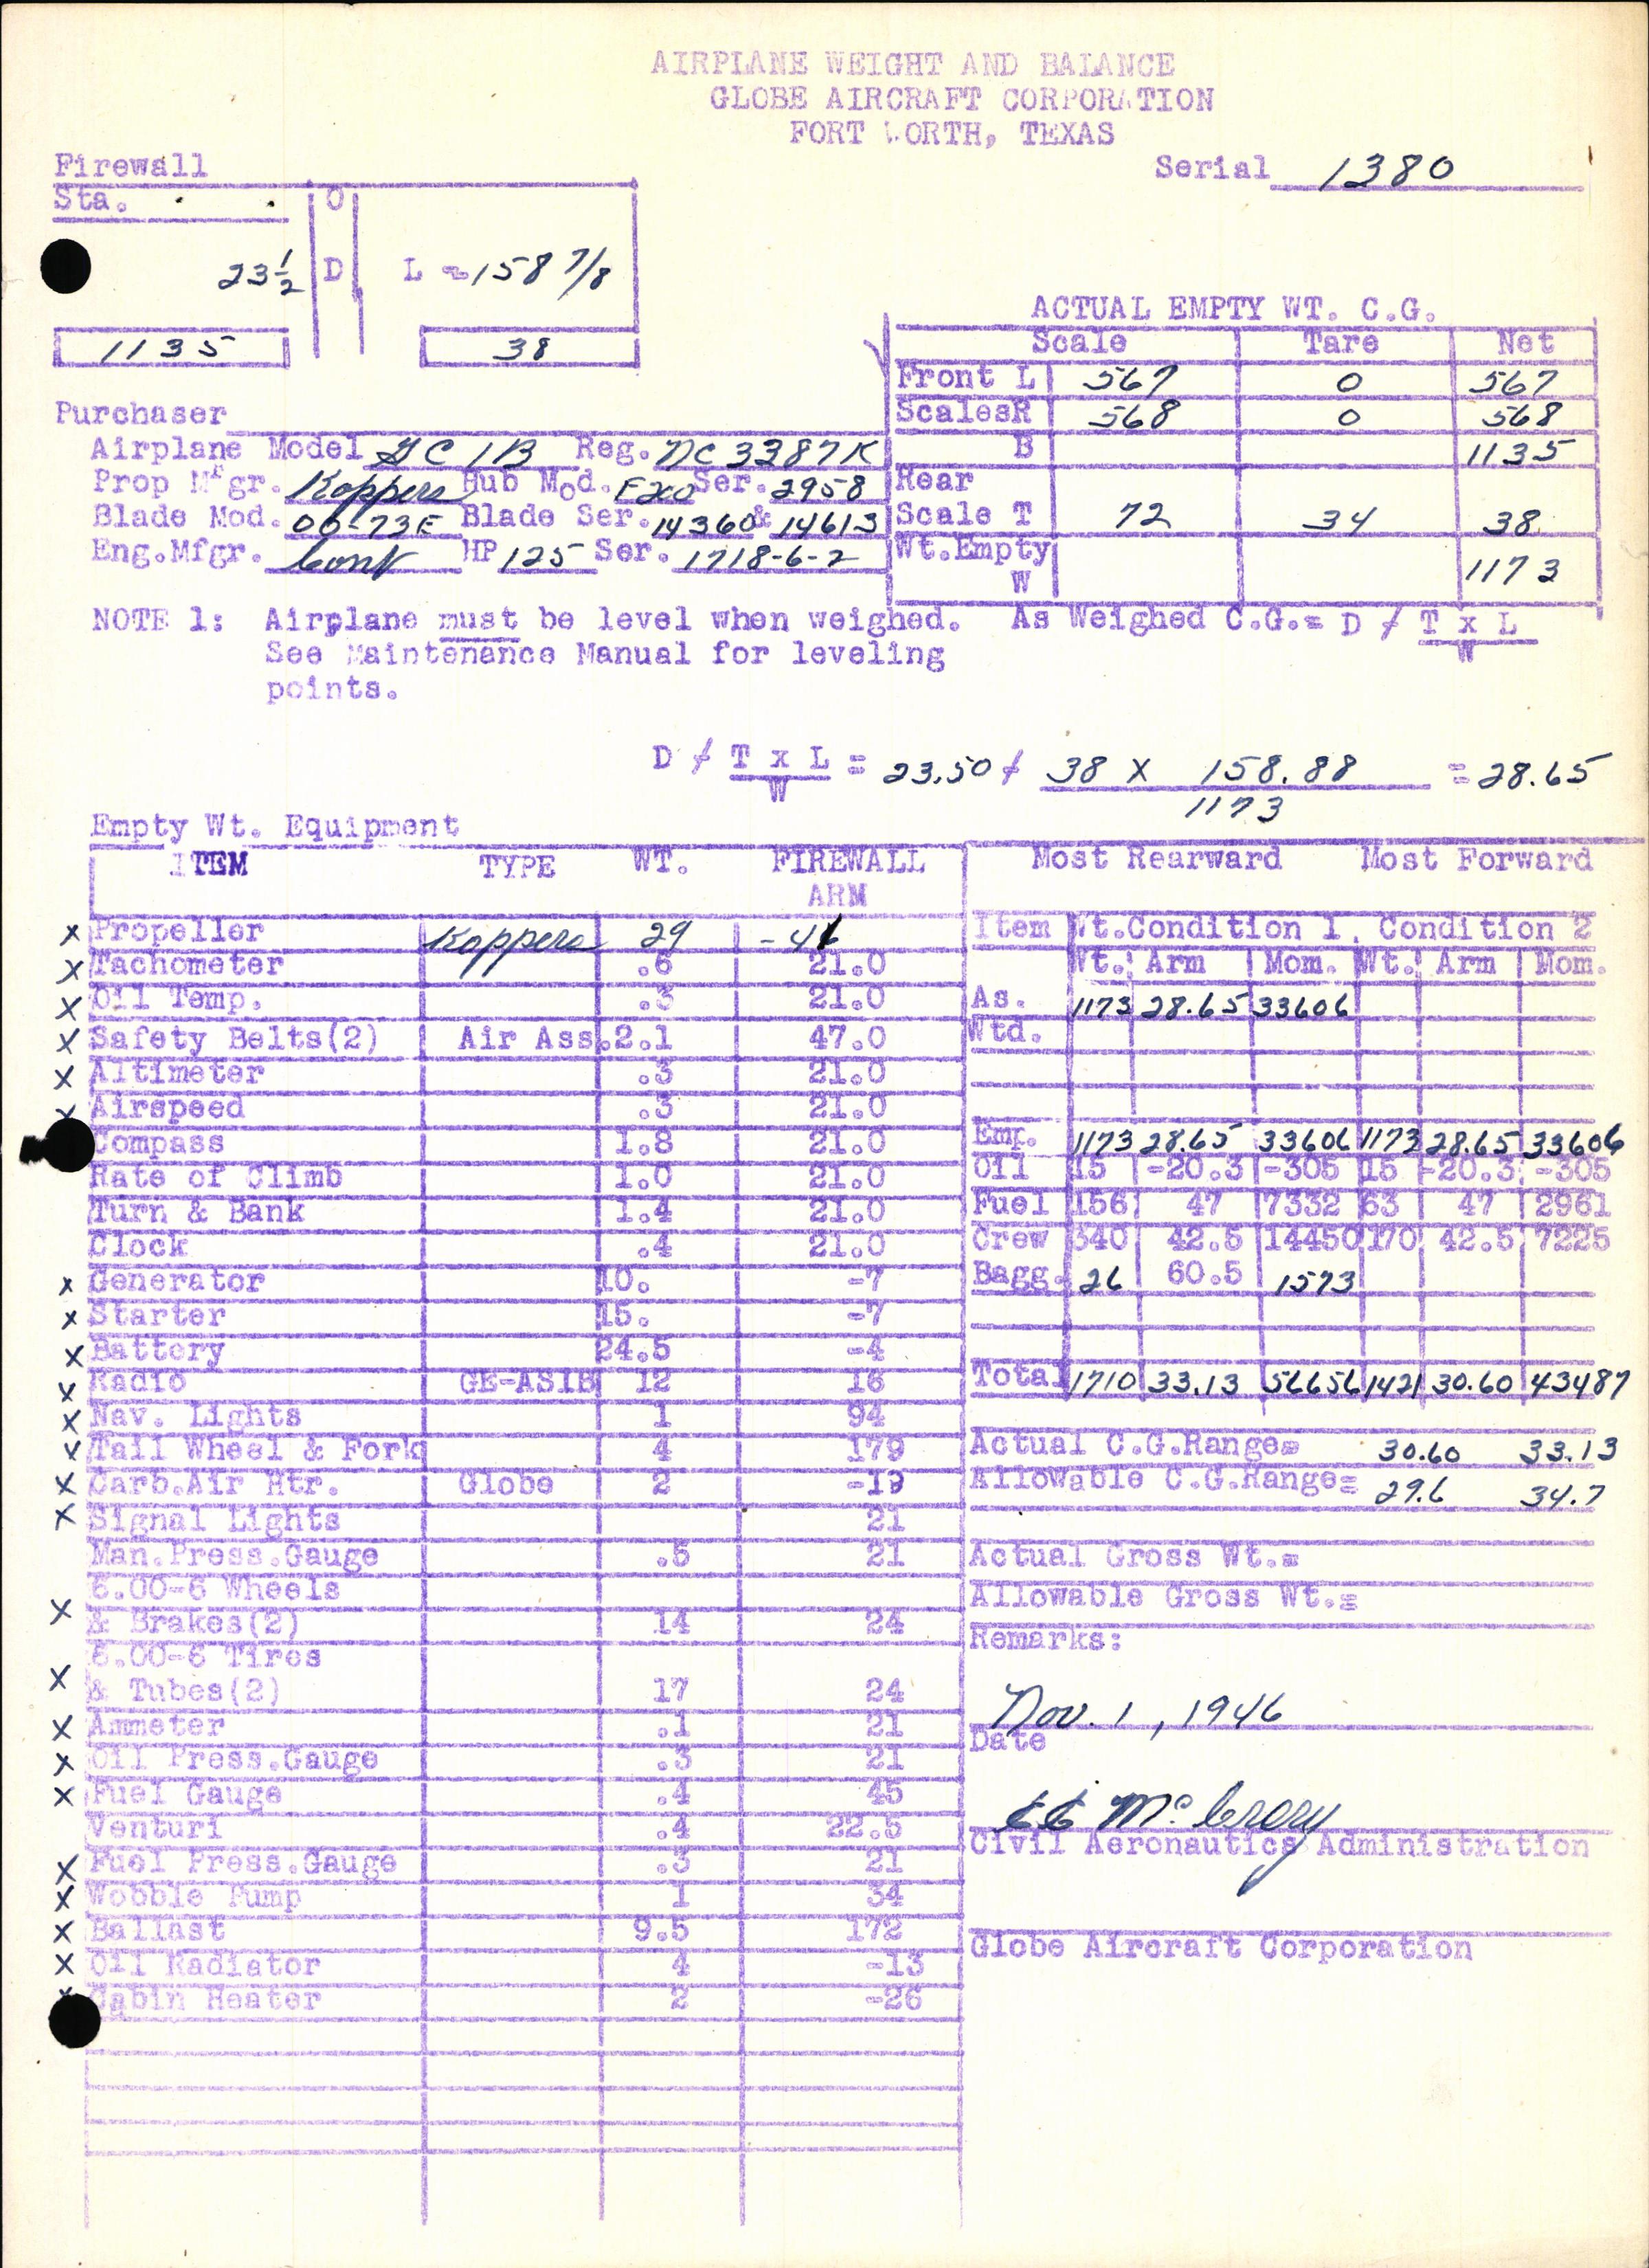 AIRPLANE WEIGHT AND BALANCE
GLOBE AIRCRAFT CORPORATION
FORT WORTH, TEXAS
Serial 1380
Firewall
Sta. O
23 1/2 D L = 158 7/8
1135 38
ACTUAL EMPTY WT. C.G.
Scale Tare Net
Front L 567 0 567
Scales R 568 0 568
B 1135
Rear
Scale T 72 34 38
Wt. Empty
W 1173
Purchaser
Airplane Model GC 1B Reg. NC 3387K
Prop Mfgr. Koppers Hub Mod. F200 Ser. 2958
Blade Mod. 00-73E Blade Ser. 14360 & 14613
Eng.Mfgr. Cont HP 125 Ser. 1718-6-2
NOTE 1: Airplane must be level when weighed. As Weighed C.G.= D / T x L
W
See Maintenance Manual for leveling
points.
D / T x L = 23.50 / 38 x 158.88 = 28.65
W 1173
Empty Wt. Equipment
ITEM TYPE WT. FIREWALL
ARM
x Propeller Koppers 29 -41
x Tachometer .6 21.0
x Oil Temp. .3 21.0
x Safety Belts(2) Air Ass. 2.1 47.0
x Altimeter .3 21.0
x Airspeed .3 21.0
Compass 1.8 21.0
Rate of Climb 1.0 21.0
Turn & Bank 1.4 21.0
Clock .4 21.0
x Generator 10. -7
x Starter 15. -7
x Battery 24.5 -4
x Radio GE-AS1B 12 16
x Nav. Lights 1 94
x Tail Wheel & Fork 4 179
x Carb.Air Htr. Globe 2 -19
x Signal Lights 21
Man.Press.Gauge .5 21
6.00-6 Wheels
x & Brakes(2) 14 24
6.00-6 Tires
x & Tubes(2) 17 24
x Ammeter .1 21
x Oil Press.Gauge .3 21
x Fuel Gauge .4 45
Venturi .4 22.5
x Fuel Press.Gauge .3 21
x Wobble Pump 1 34
x Ballast 9.5 172
x Oil Radiator 4 -13
x Cabin Heater 2 -26
Most Rearward Most Forward
Item Wt. Condition 1, Condition 2
Wt. Arm Mom. Wt. Arm Mom.
As. 1173 28.65 33606
Wtd.
Emp. 1173 28.65 33606 1173 28.65 33606
Oil 15 -20.3 -305 15 -20.3 -305
Fuel 156 47 7332 63 47 2961
Crew 340 42.5 14450 170 42.5 7225
Bagg. 26 60.5 1573
Total 1710 33.13 56656 1421 30.60 43487
Actual C.G.Range= 30.60 33.13
Allowable C.G.Range= 29.6 34.7
Actual Gross Wt.=
Allowable Gross Wt.=
Remarks:
Nov. 1, 1946
Date
McCrory
Civil Aeronautics Administration
Globe Aircraft Corporation